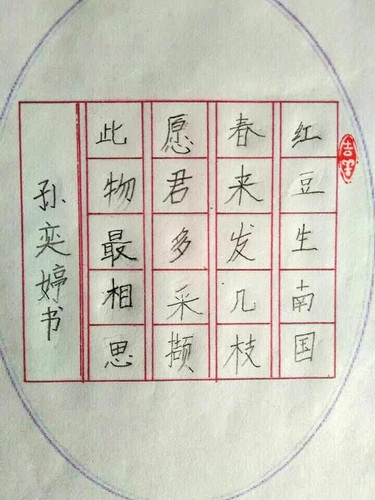 红豆生南国
春来发几枝
愿君多采撷
此物最相思
孙奕婷书